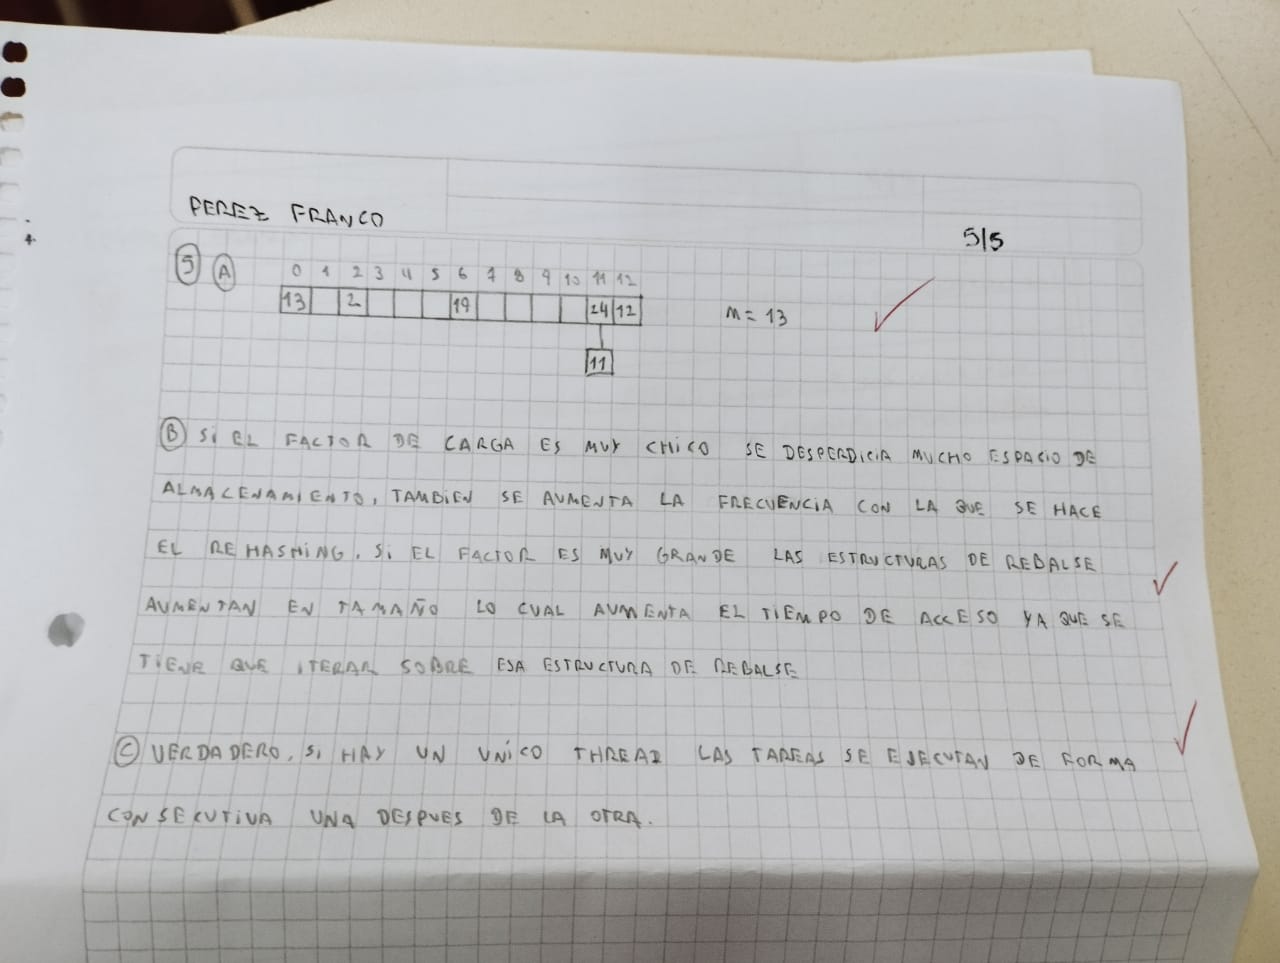 PEREZ FRANCO
5/5
5 A 0 1 2 3 4 5 6 7 8 9 10 11 12
13 2 19 24 12 M = 13
11
B SI EL FACTOR DE CARGA ES MUY CHICO SE DESPERDICIA MUCHO ESPACIO DE
ALMACENAMIENTO, TAMBIEN SE AUMENTA LA FRECUENCIA CON LA QUE SE HACE
EL REHASHING. SI EL FACTOR ES MUY GRANDE LAS ESTRUCTURAS DE REBALSE
AUMENTAN EN TAMAÑO LO CUAL AUMENTA EL TIEMPO DE ACCESO YA QUE SE
TIENE QUE ITERAR SOBRE ESA ESTRUCTURA DE REBALSE
C VERDADERO, SI HAY UN UNICO THREAD LAS TAREAS SE EJECUTAN DE FORMA
CONSECUTIVA UNA DESPUES DE LA OTRA.